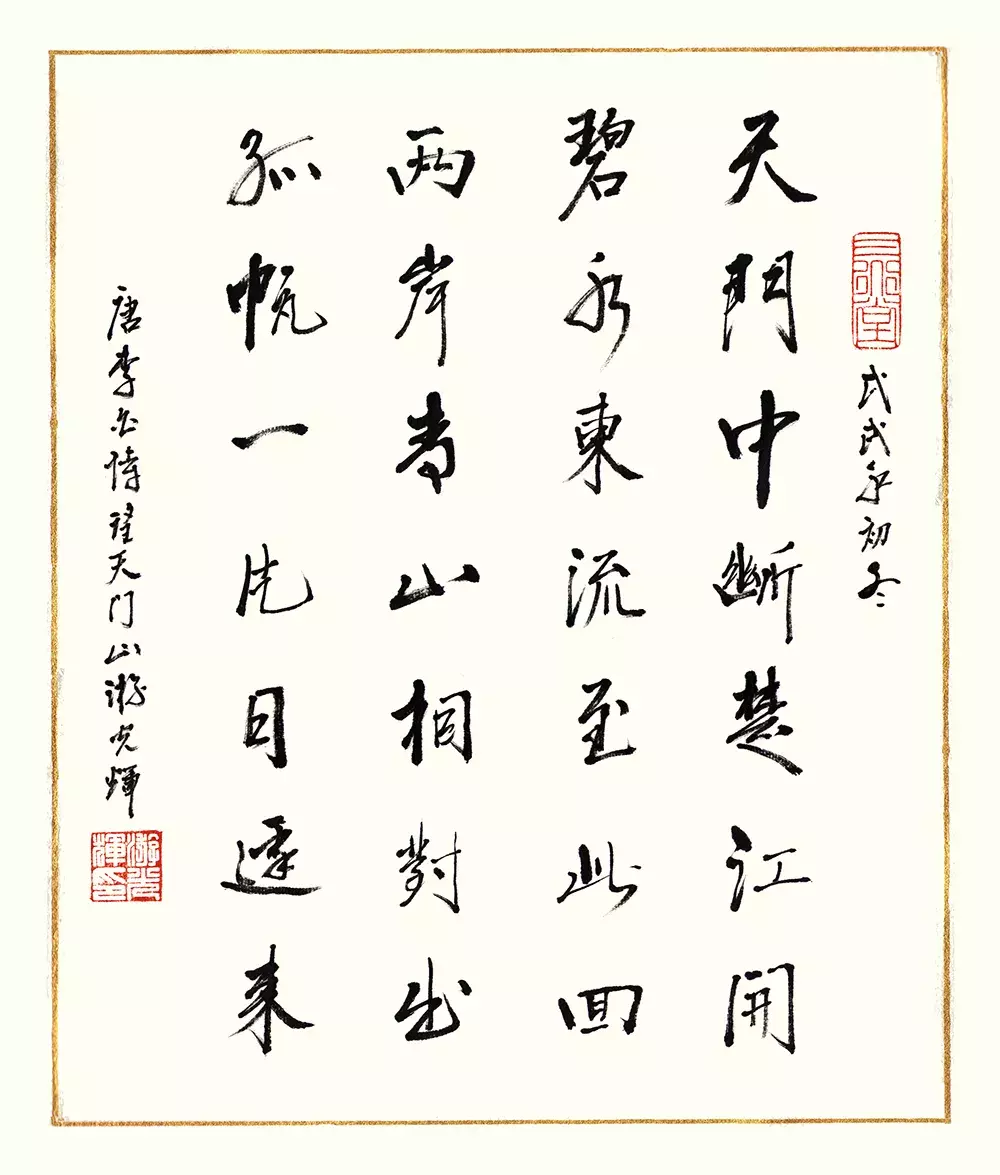 戊戌年初冬
天門中斷楚江開
碧水東流至此回
两岸青山相對出
孤帆一片日邊來
唐李白詩望天门山游光輝
游光輝印